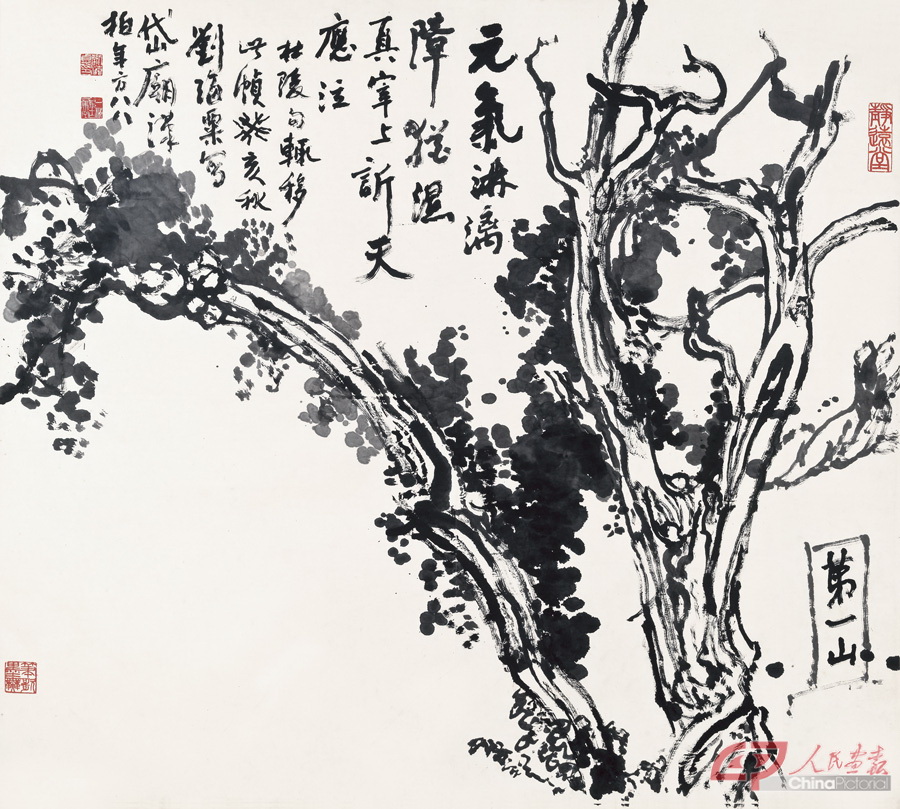 元氣淋漓
障猶濕
真宰上訴天
應泣
杜陵句輒移
此幀癸亥秋
劉海粟寫
岱廟漢
柏年方八八
靜遠堂
第一山
人民画报
ChinaPictorial